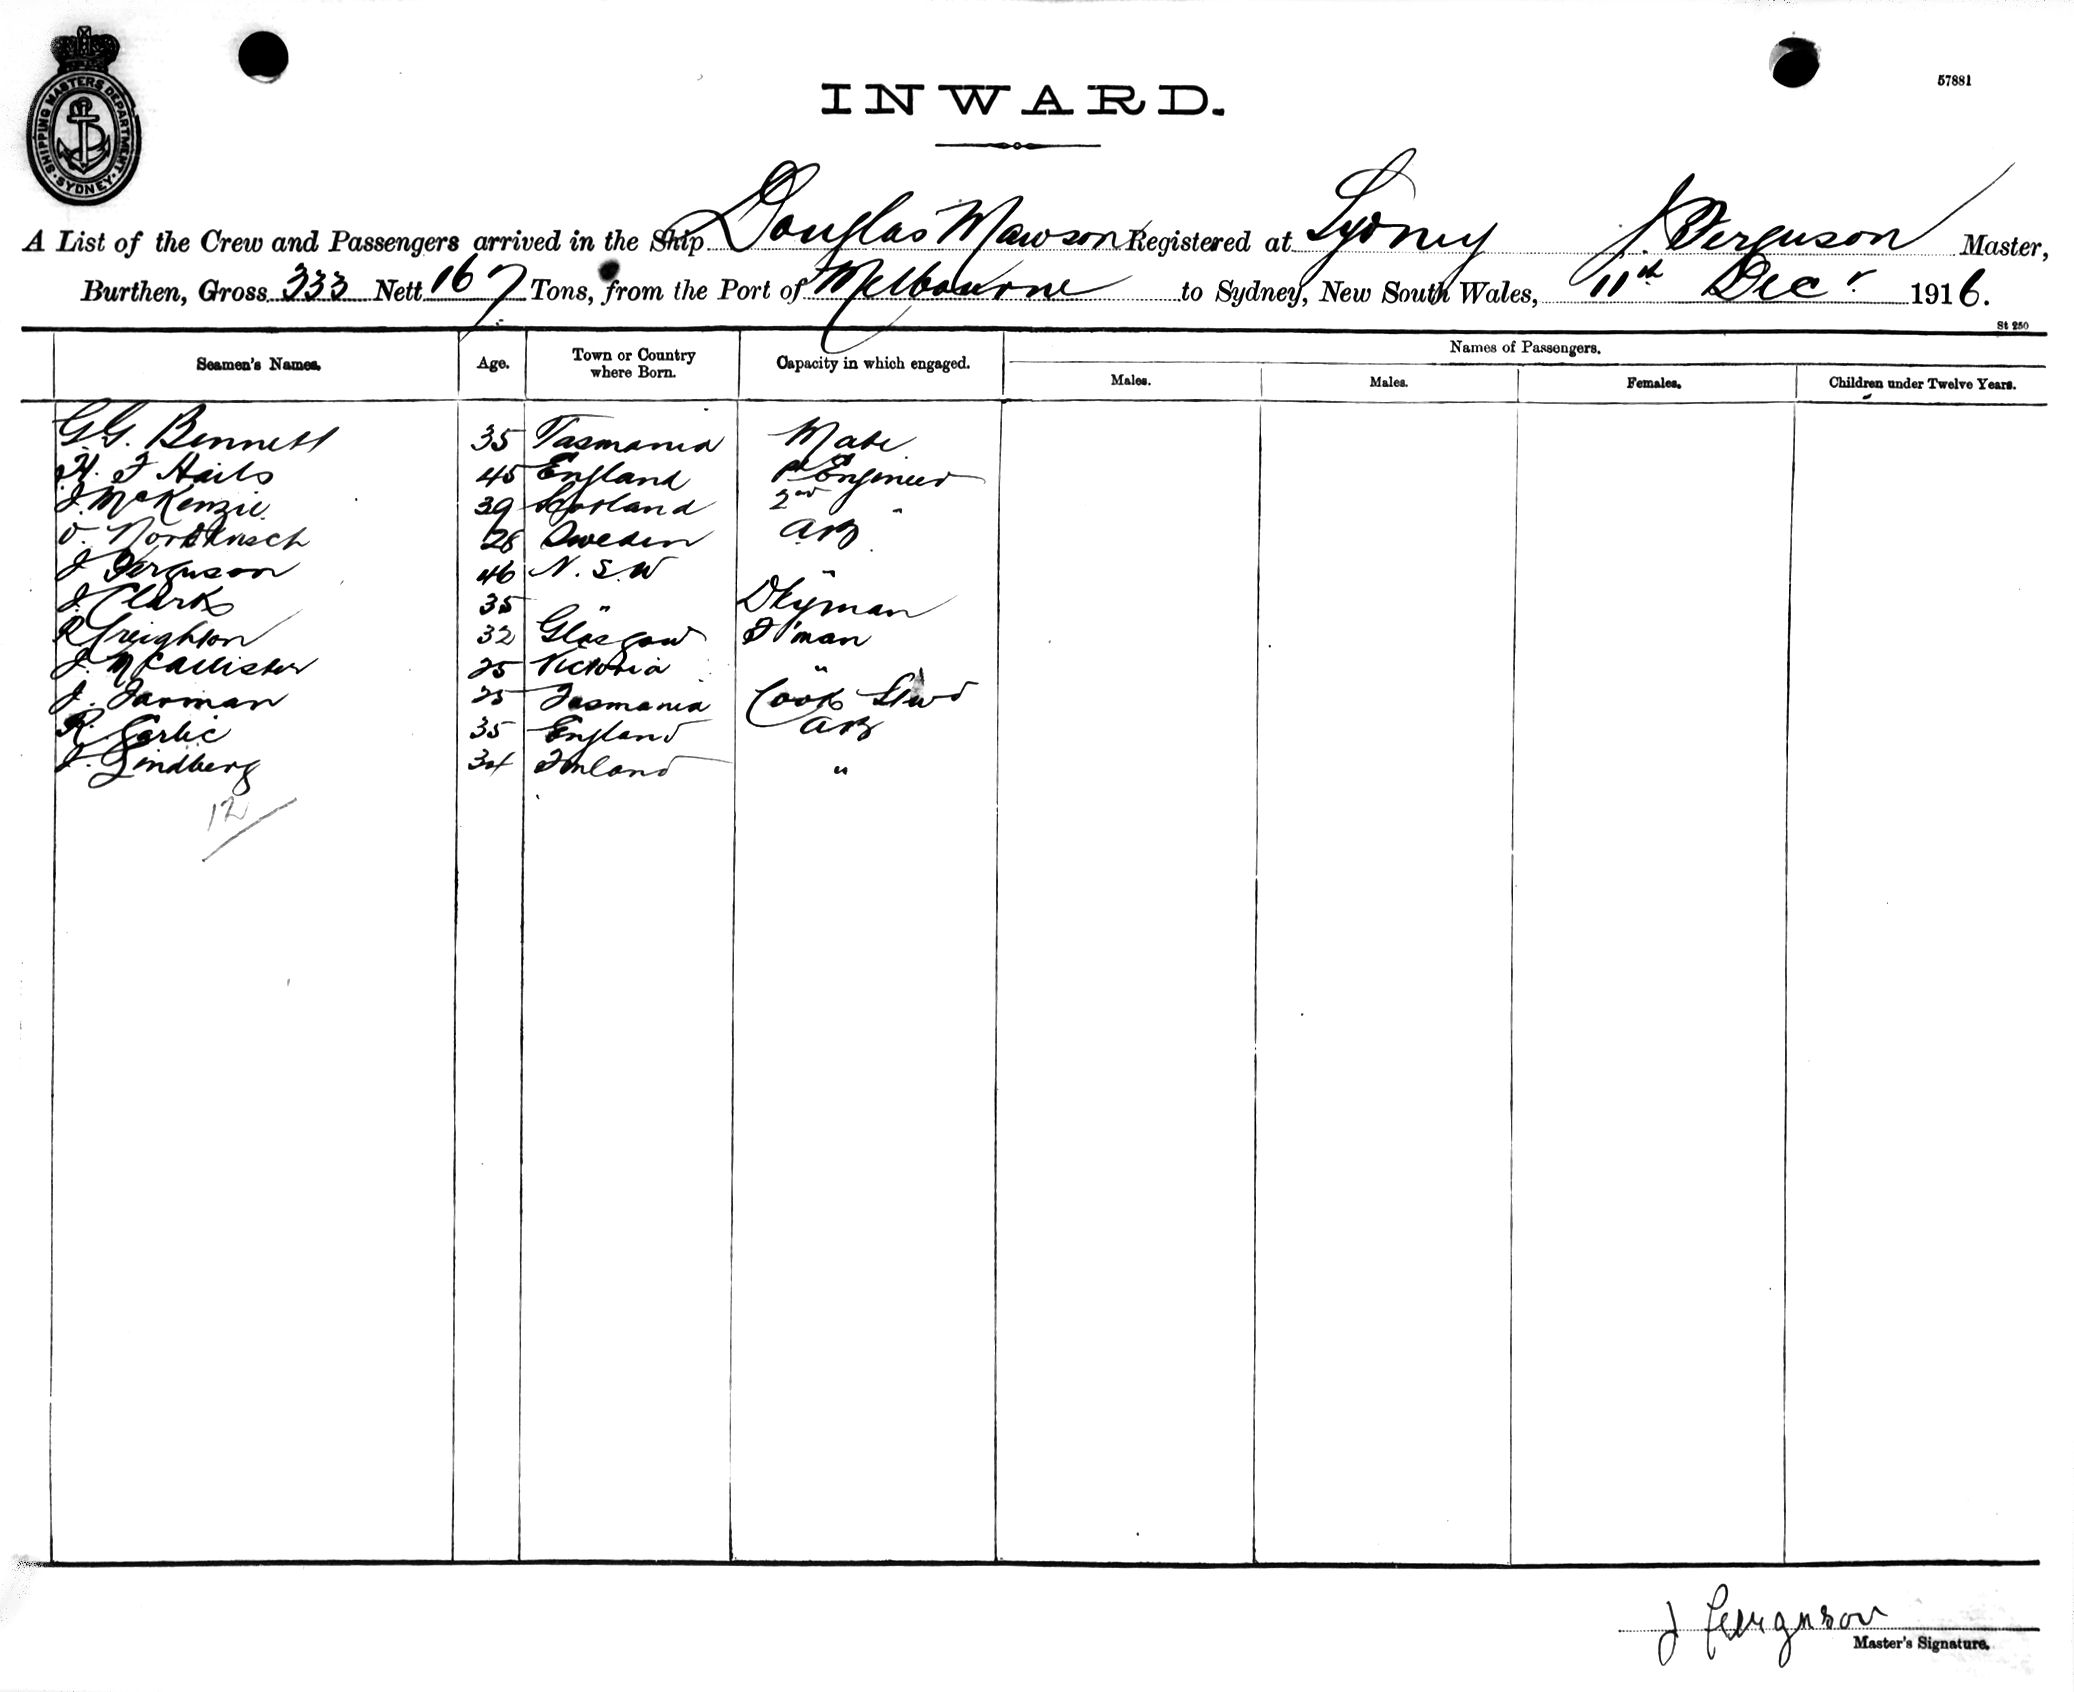 SHIPPING MASTERS DEPARTMENT. SYDNEY.
57881
INWARD.
A List of the Crew and Passengers arrived in the Ship Douglas Mawson Registered at Sydney J. Ferguson Master,
Burthen, Gross 333 Nett 167 Tons, from the Port of Melbourne to Sydney, New South Wales, 11th Decr 1916.
St 250
Seamen's Names. Age. Town or Country where Born. Capacity in which engaged. Names of Passengers.
Males. Males. Females. Children under Twelve Years.
G.G. Bennett 35 Tasmania Mate
H. F Hails 45 England 1st Engineer
J. McKenzie 39 Scotland 2nd "
O. 28 Sweden AB
J Ferguson 46 N.S.W "
J. Clark 35 " Dkyman
R Creighton 32 Glasgow F'man
J. McCallister 25 Victoria "
J. Jarman 25 Tasmania Cook Stwd
R. Garlic 35 England AB
J. Lindberg 34 Finland "
12
J Ferguson
Master's Signature.